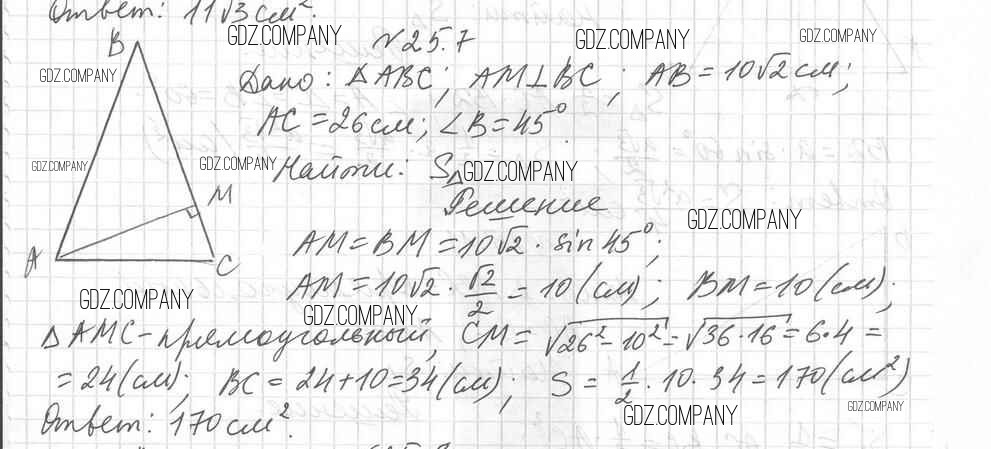 Ответ: 11√3 см².
B GDZ.COMPANY №25.7 GDZ.COMPANY GDZ.COMPANY
GDZ.COMPANY Дано: ΔABC; AM⊥BC; AB=10√2 см;
AC=26 см; ∠B=45°
GDZ.COMPANY GDZ.COMPANY Найти: SΔ GDZ.COMPANY
M Решение GDZ.COMPANY
A C AM=BM=10√2 · sin 45°;
GDZ.COMPANY AM=10√2 · √2/2 = 10 (см); BM=10 (см);
GDZ.COMPANY
ΔAMC-прямоугольный, CM= √26²-10² = √36·16 = 6·4 =
=24 (см); BC = 24+10=34 (см); S = 1/2 · 10 · 34 = 170 (см²)
Ответ: 170 см². GDZ.COMPANY GDZ.COMPANY